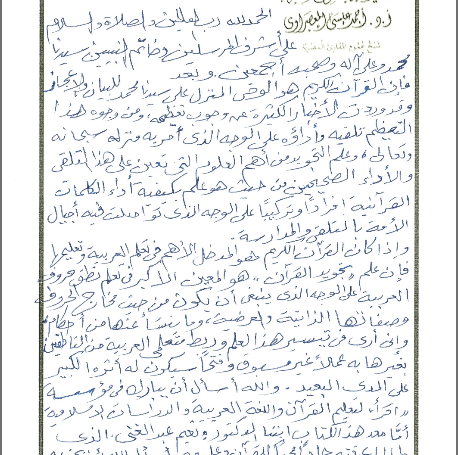 الحمد لله رب العالمين والصلاة والسلام
أ.د. أحمد عيسى المعصراوي
على أشرف المرسلين وخاتم النبيين سيدنا
شيخ عموم المقارئ المصرية
محمد وعلى آله وصحبه أجمعين . وبعد
فإن القرآن الكريم هو الوحي المنزل على سيدنا محمد للبيان والإعجاز
وقد وردت الأخبار الكثيرة عن وجوب تعظيمه، ومن وجوه هذا
التعظيم تلقيه وأداؤه على الوجه الذى أمر به ومنزله سبحانه
وتعالى، وعلم التجويد من أهم العلوم التى تعين على هذا التلقى
والأداء الصحيحين من حيث هو علم بكيفية أداء الكلمات
القرآنية إفراداً وتركيباً على الوجه الذى تواصلت فيه أجيال
الأمة بالتلقى والمدارسة.
وإذا كان القرآن الكريم هو المدخل الأهم فى تعلم العربية وتعليمها
فإن علم "تجويد القرآن" هو المعين الأكبر فى تعلم نطق حروف
العربية على الوجه الذى ينبغى أن يكون من حيث مخارج الحروف
وصفاتها الذاتية والعرضية، وما ينشأ عنها من أحكام
وإنى أرى فى تيسير هذا العلم وربط متعلمى العربية من الناطقين
بغيرها به عملاً غير مسبوق وفتحاً سيكون له أثره الكبير
على المدى البعيد . والله أسأل أن يبارك فى مؤسسة
"اقرأ" لتعليم القرآن واللغة العربية والدراسات الإسلامية
أما معد هذا الكتاب ابننا الدكتور / نعيم عبد الغنى، الذى